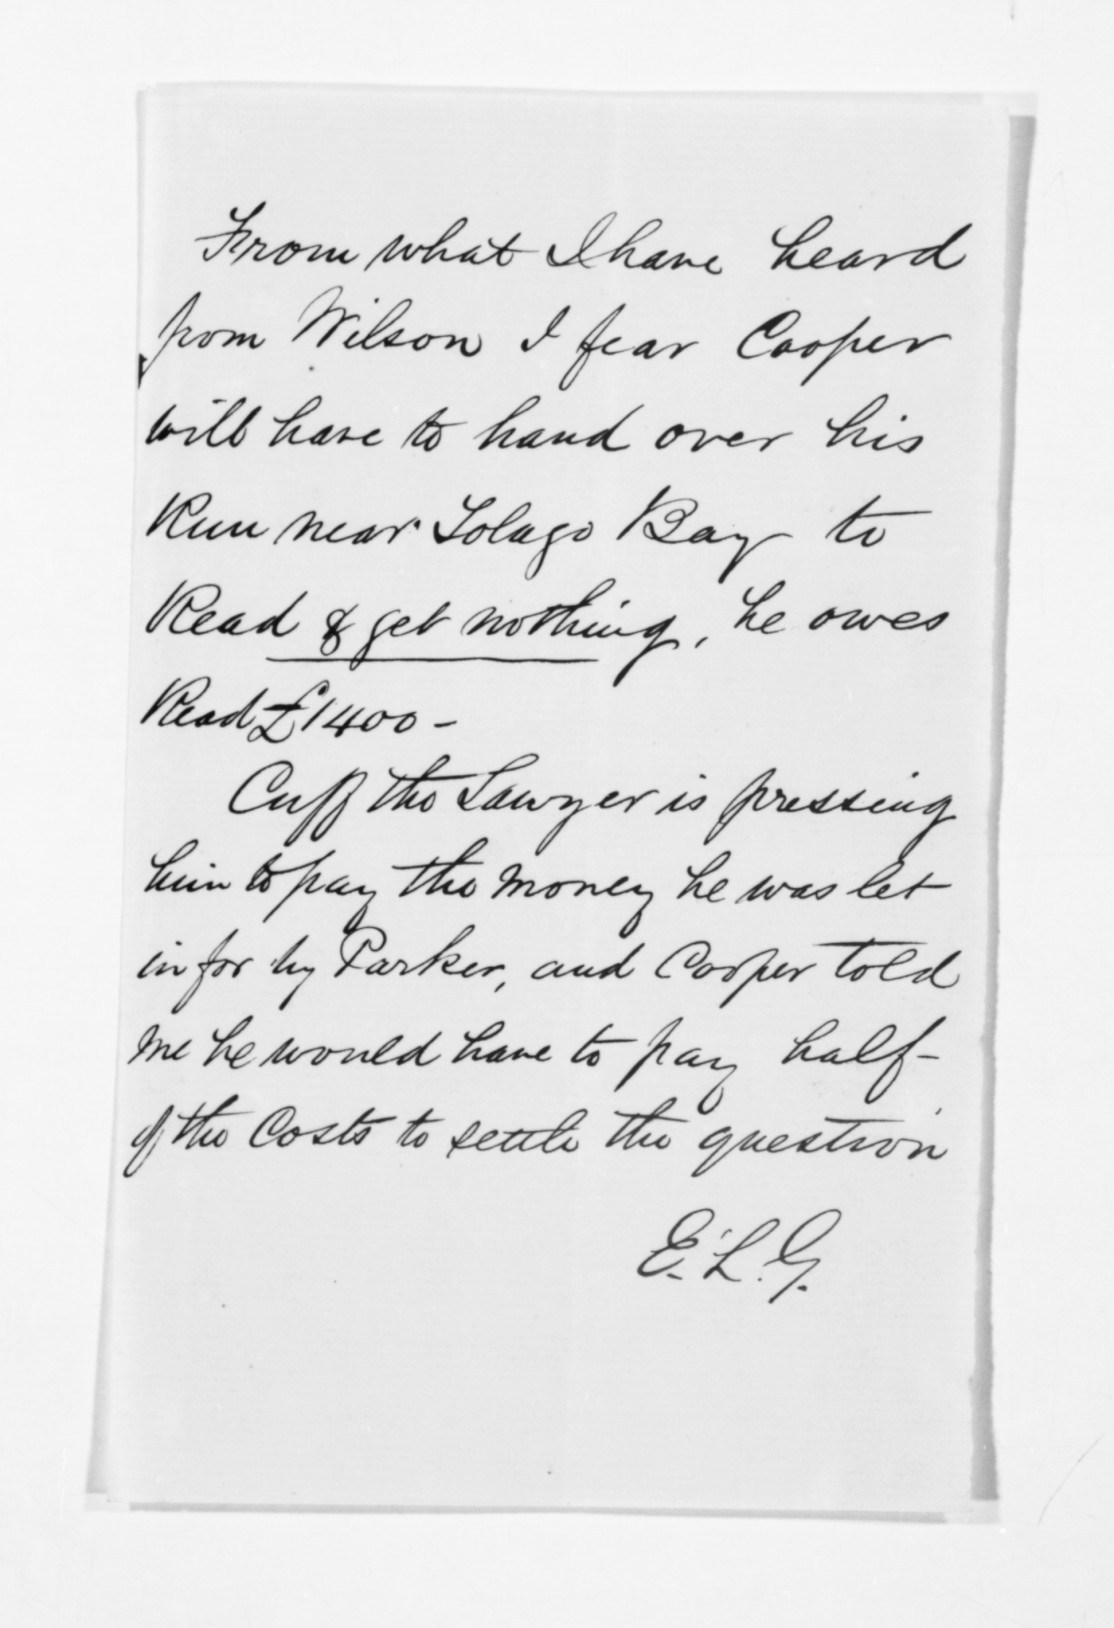 From what I have heard
from Wilson I fear Cooper
will have to hand over his
Run near Tolago Bay to
Read & get nothing, he owes
Read £1400 -
Cuff the Lawyer is pressing
him to pay the money he was let
in for by Parker, and Cooper told
me he would have to pay half-
of the Costs to settle the question
E. L. G.